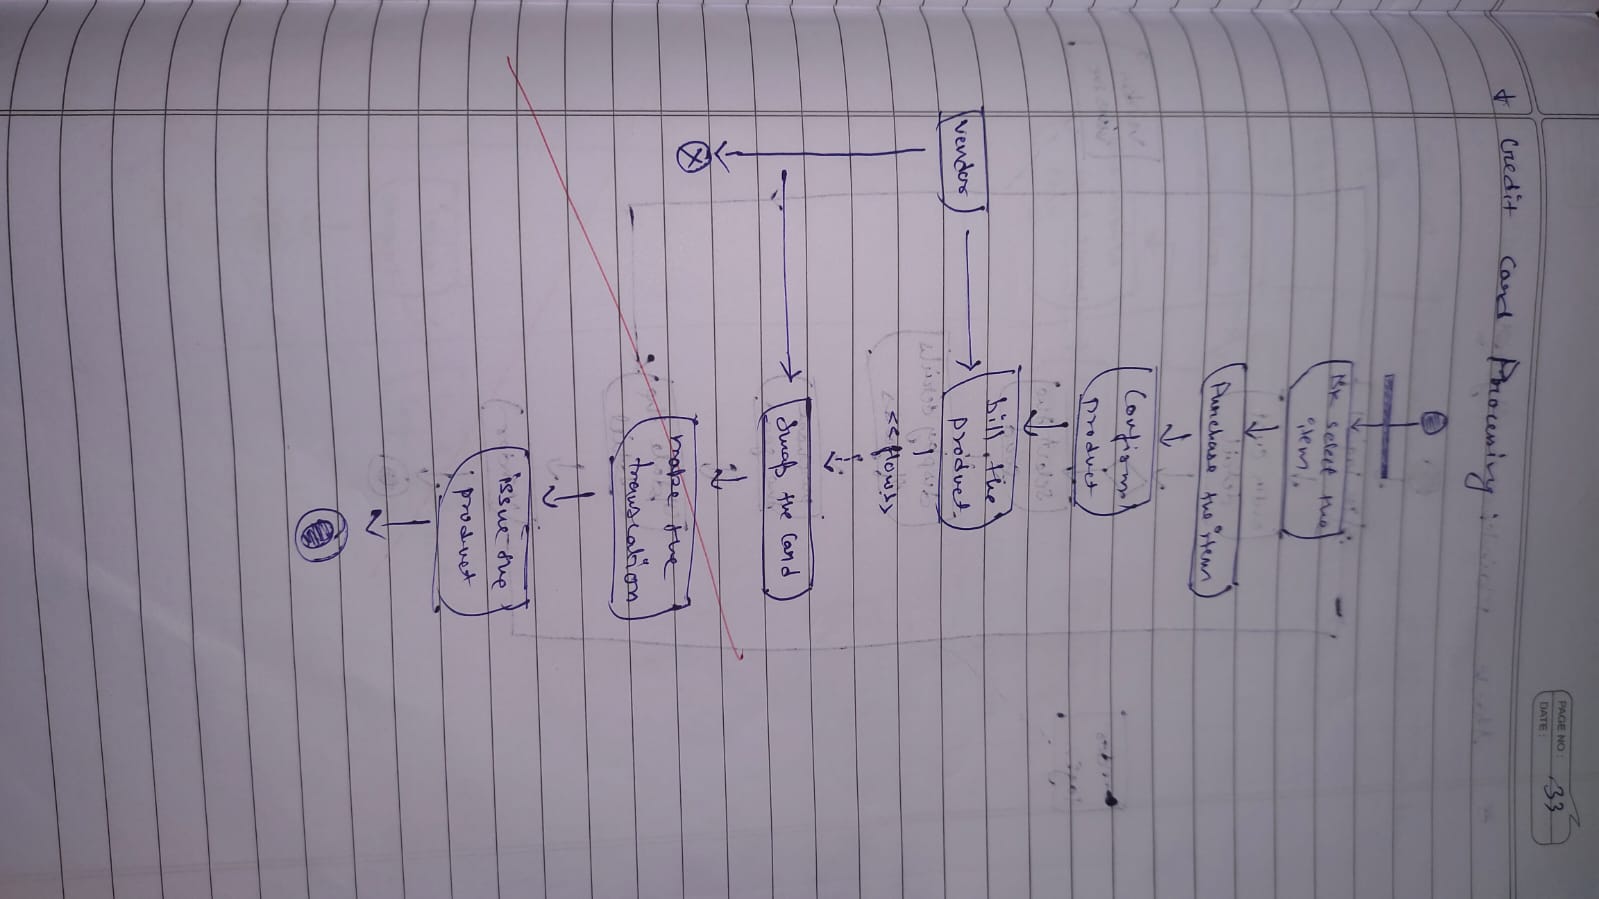 PAGE NO: 33
DATE:
+ Credit Card Processing
select the
item.
Purchase the item
Confirm
product
vendor
bill the
product.
<<flow>>
Swap the Card
make the
transcation
issue the
product